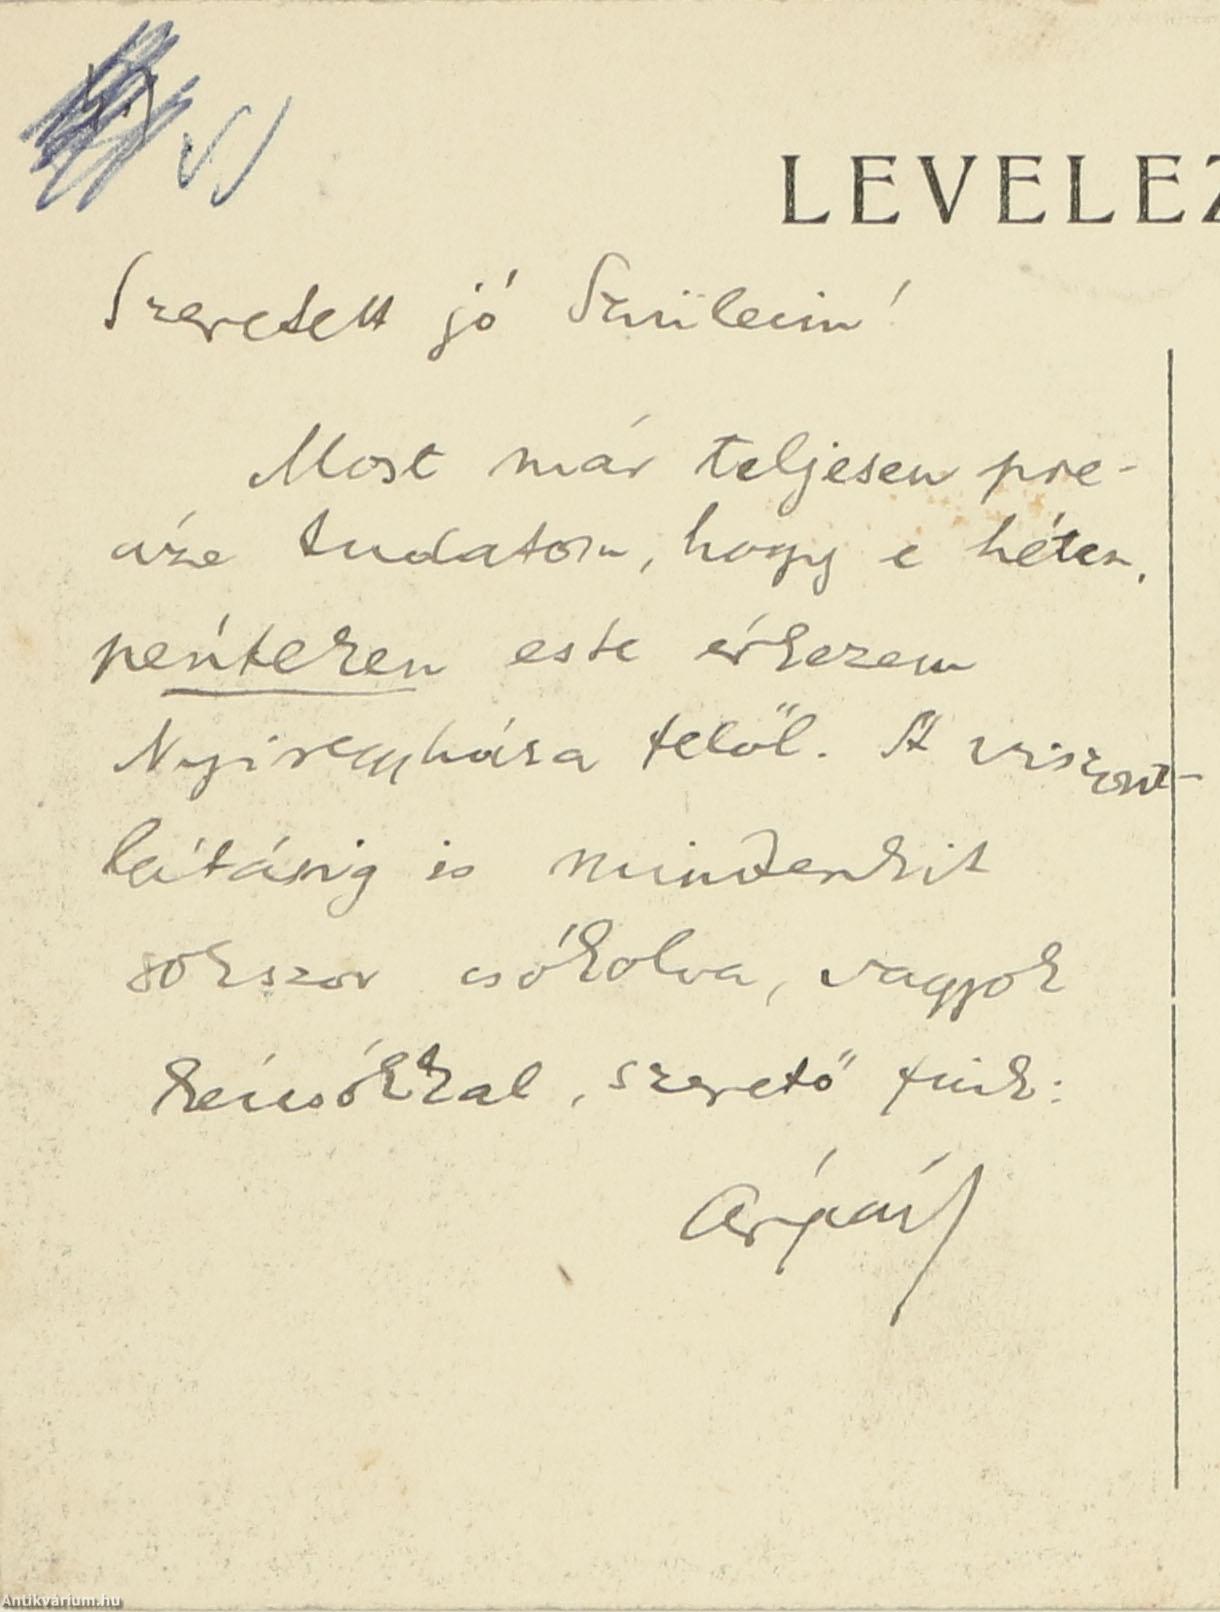 LEVELEZ
Szeretett jó Szüleim!
Most már teljesen pre-
cíze tudatom, hogy e héten,
pénteken este érkezem
Nyiregyháza felől. A viszont-
látásig is mindenkit
sokszor csókolva, vagyok
kézcsókkal, szerető fiuk:
Árpád
Antikvárium.hu